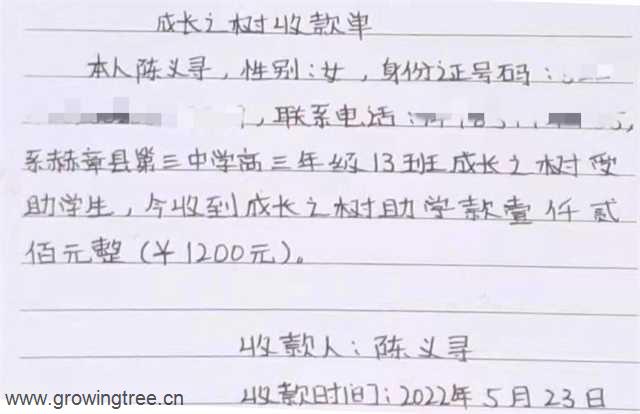 成长之树收款单
本人陈义寻，性别：女，身份证号码：
，联系电话：
系赫章县第三中学高三年级13班成长之树受
助学生，今收到成长之树助学款壹仟贰
佰元整（￥1200元）。
收款人：陈义寻
收款时间：2022年5月23日
www.growingtree.cn